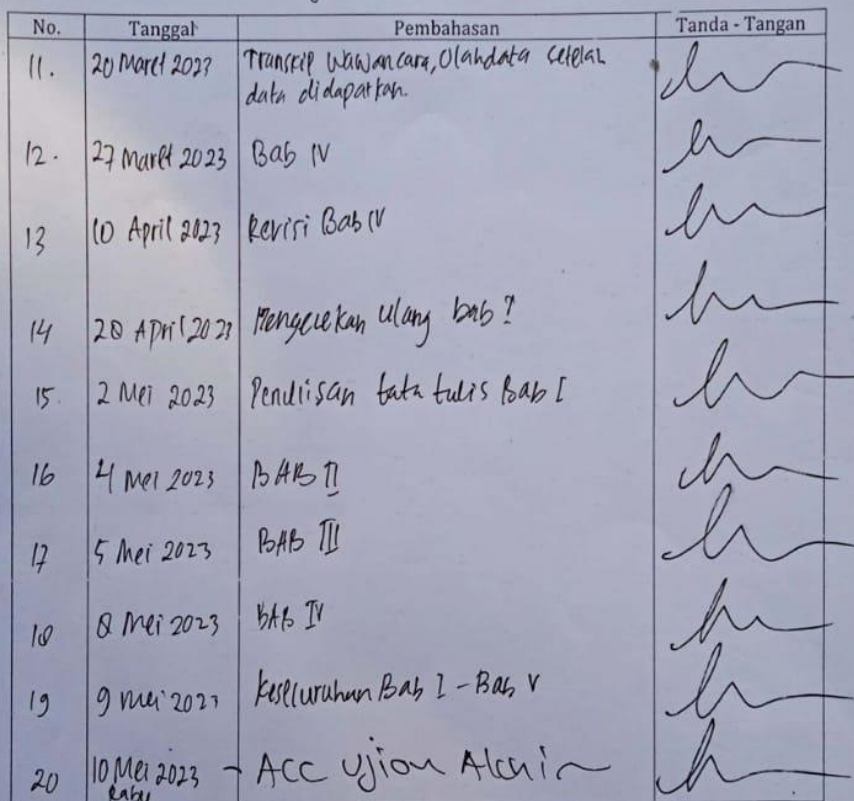 No. Tanggal Pembahasan Tanda - Tangan
11. 20 Maret 2023 Transkip Wawancara, Olahdata setelah
data didapatkan.
12. 27 Maret 2023 Bab IV
13 10 April 2023 Revisi Bab IV
14 28 April 2023 Pengecekan Ulang bab I
15. 2 Mei 2023 Penulisan tata tulis Bab I
16 4 Mei 2023 BAB II
17 5 Mei 2023 BAB III
18 8 Mei 2023 BAB IV
19 9 Mei 2023 Keseluruhan Bab I - Bab V
20 10 Mei 2023 - ACC Ujian Akhir
Rabu